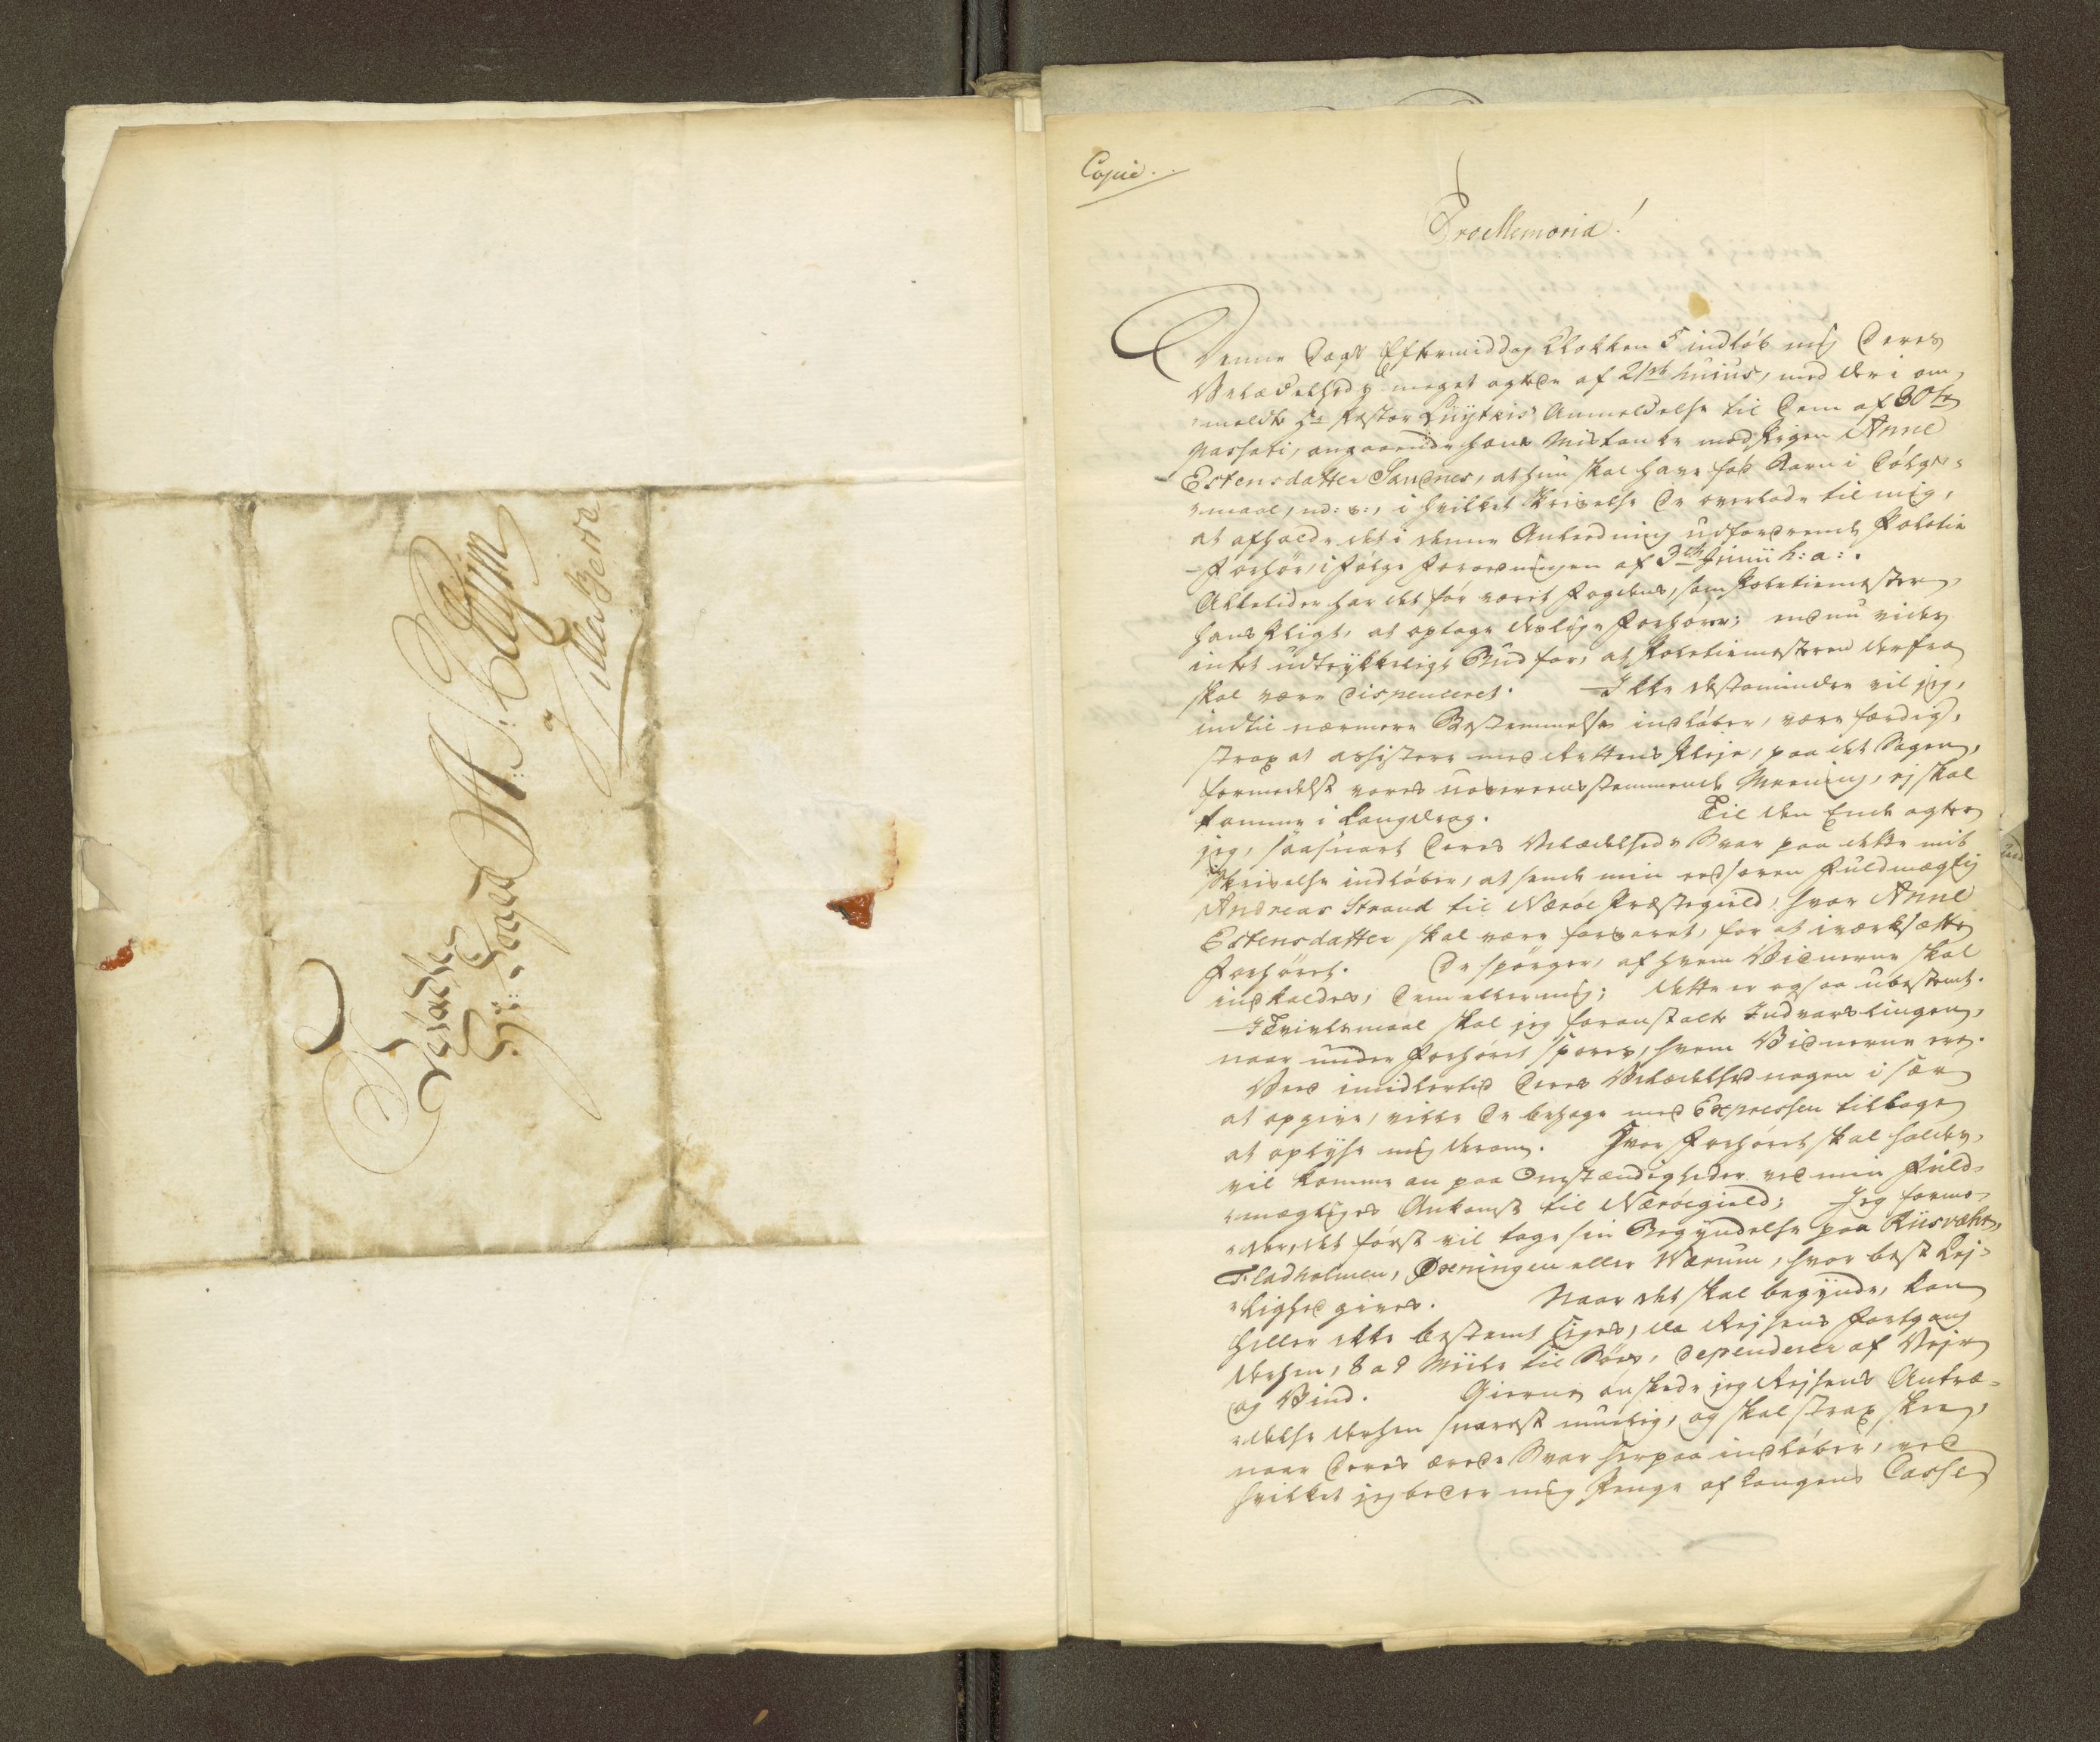 Velædle
Hr: Foged H: Cathrin
Villa Berra
Copie.
ProMemoria!
Denne Dags Eftermiddag Klokken 5 indløb mig Deres
Velædelheds meget agtede af 21de hujus, med deri om¬
meldte Hr Pastor Luytkis Anmeldelse til Dem af 30te
passati, angaaende hans Mistanke med Pigen Anne
Estensdatter Sandnes, at hun skal have fød Barn i Dølgs¬
maal, m: v:, i hvilket Skrivelse De overlode til mig,
at afholde det i denne Anledning udfordrende Politie
Forhör, i Følge Forordningen af 3de Junii h: a:.
Alletider har det før været Fogdens, som Politiemester,
hans Pligt, at optage deslige Forhörer; endnu vides
intet udtrykkeligt Bud for, at Politiemesteren derfra
skal være dispenceret. Ikke destomindre vil jeg,
indtil nærmere Bestemmelse indløber, være færdig,
strax at assistere med Rettens Pleje, paa det Sagen,
formedelst vores uoverensstemmende Meening, ej skal
komme i Langdrag. Til den Ende agter
jeg, saasnart Deres Velædelheds Svar paa dette mit
Skrivelse indløber, at sende min eedsoren Fuldmægtig
Andreas Strand til Nærøe Præstegield, hvor Anne
Estensdatter skal være forvaret, for at iværksætte
Forhöret. De spørger, af hvem Vidnerne skal
indkaldes, Dem eller mig; dette er ogsaa ubestemt.
I Tvivlsmaal skal jeg foranstalte Indvarslingen,
naar under Forhöret spøres, hvem Vidnerne ere.
Veed imidlertid Deres Velædelhed nogen i sær
at opgive, ville De behage med Expressen tilbage
at oplyse mig derom. Hvor Forhöret skal holdes,
vil komme an paa Omstændigheder ved min Fuld¬
mægtiges Ankomst til Nærøegield; Jeg formo¬
der, det først vil tage sin Begyndelse paa Riisvær,
Fladholmen, Øxningen eller Værum, hvor best Lej¬
lighed gives. Naar det skal begynde, kan
heller ikke bestemt siges, da Rejsens Fortgang
derhen, 8 a 9 Miile til Søes, dependerer af Vejr
og Vind. Gierne ønskede jeg Rejsens Antræ¬
delse derhen snarest muelig, og skal strax skee,
naar Deres ærede Svar herpaa indløber, ved
hvilket jeg beder mig Penge af Kongens Casse